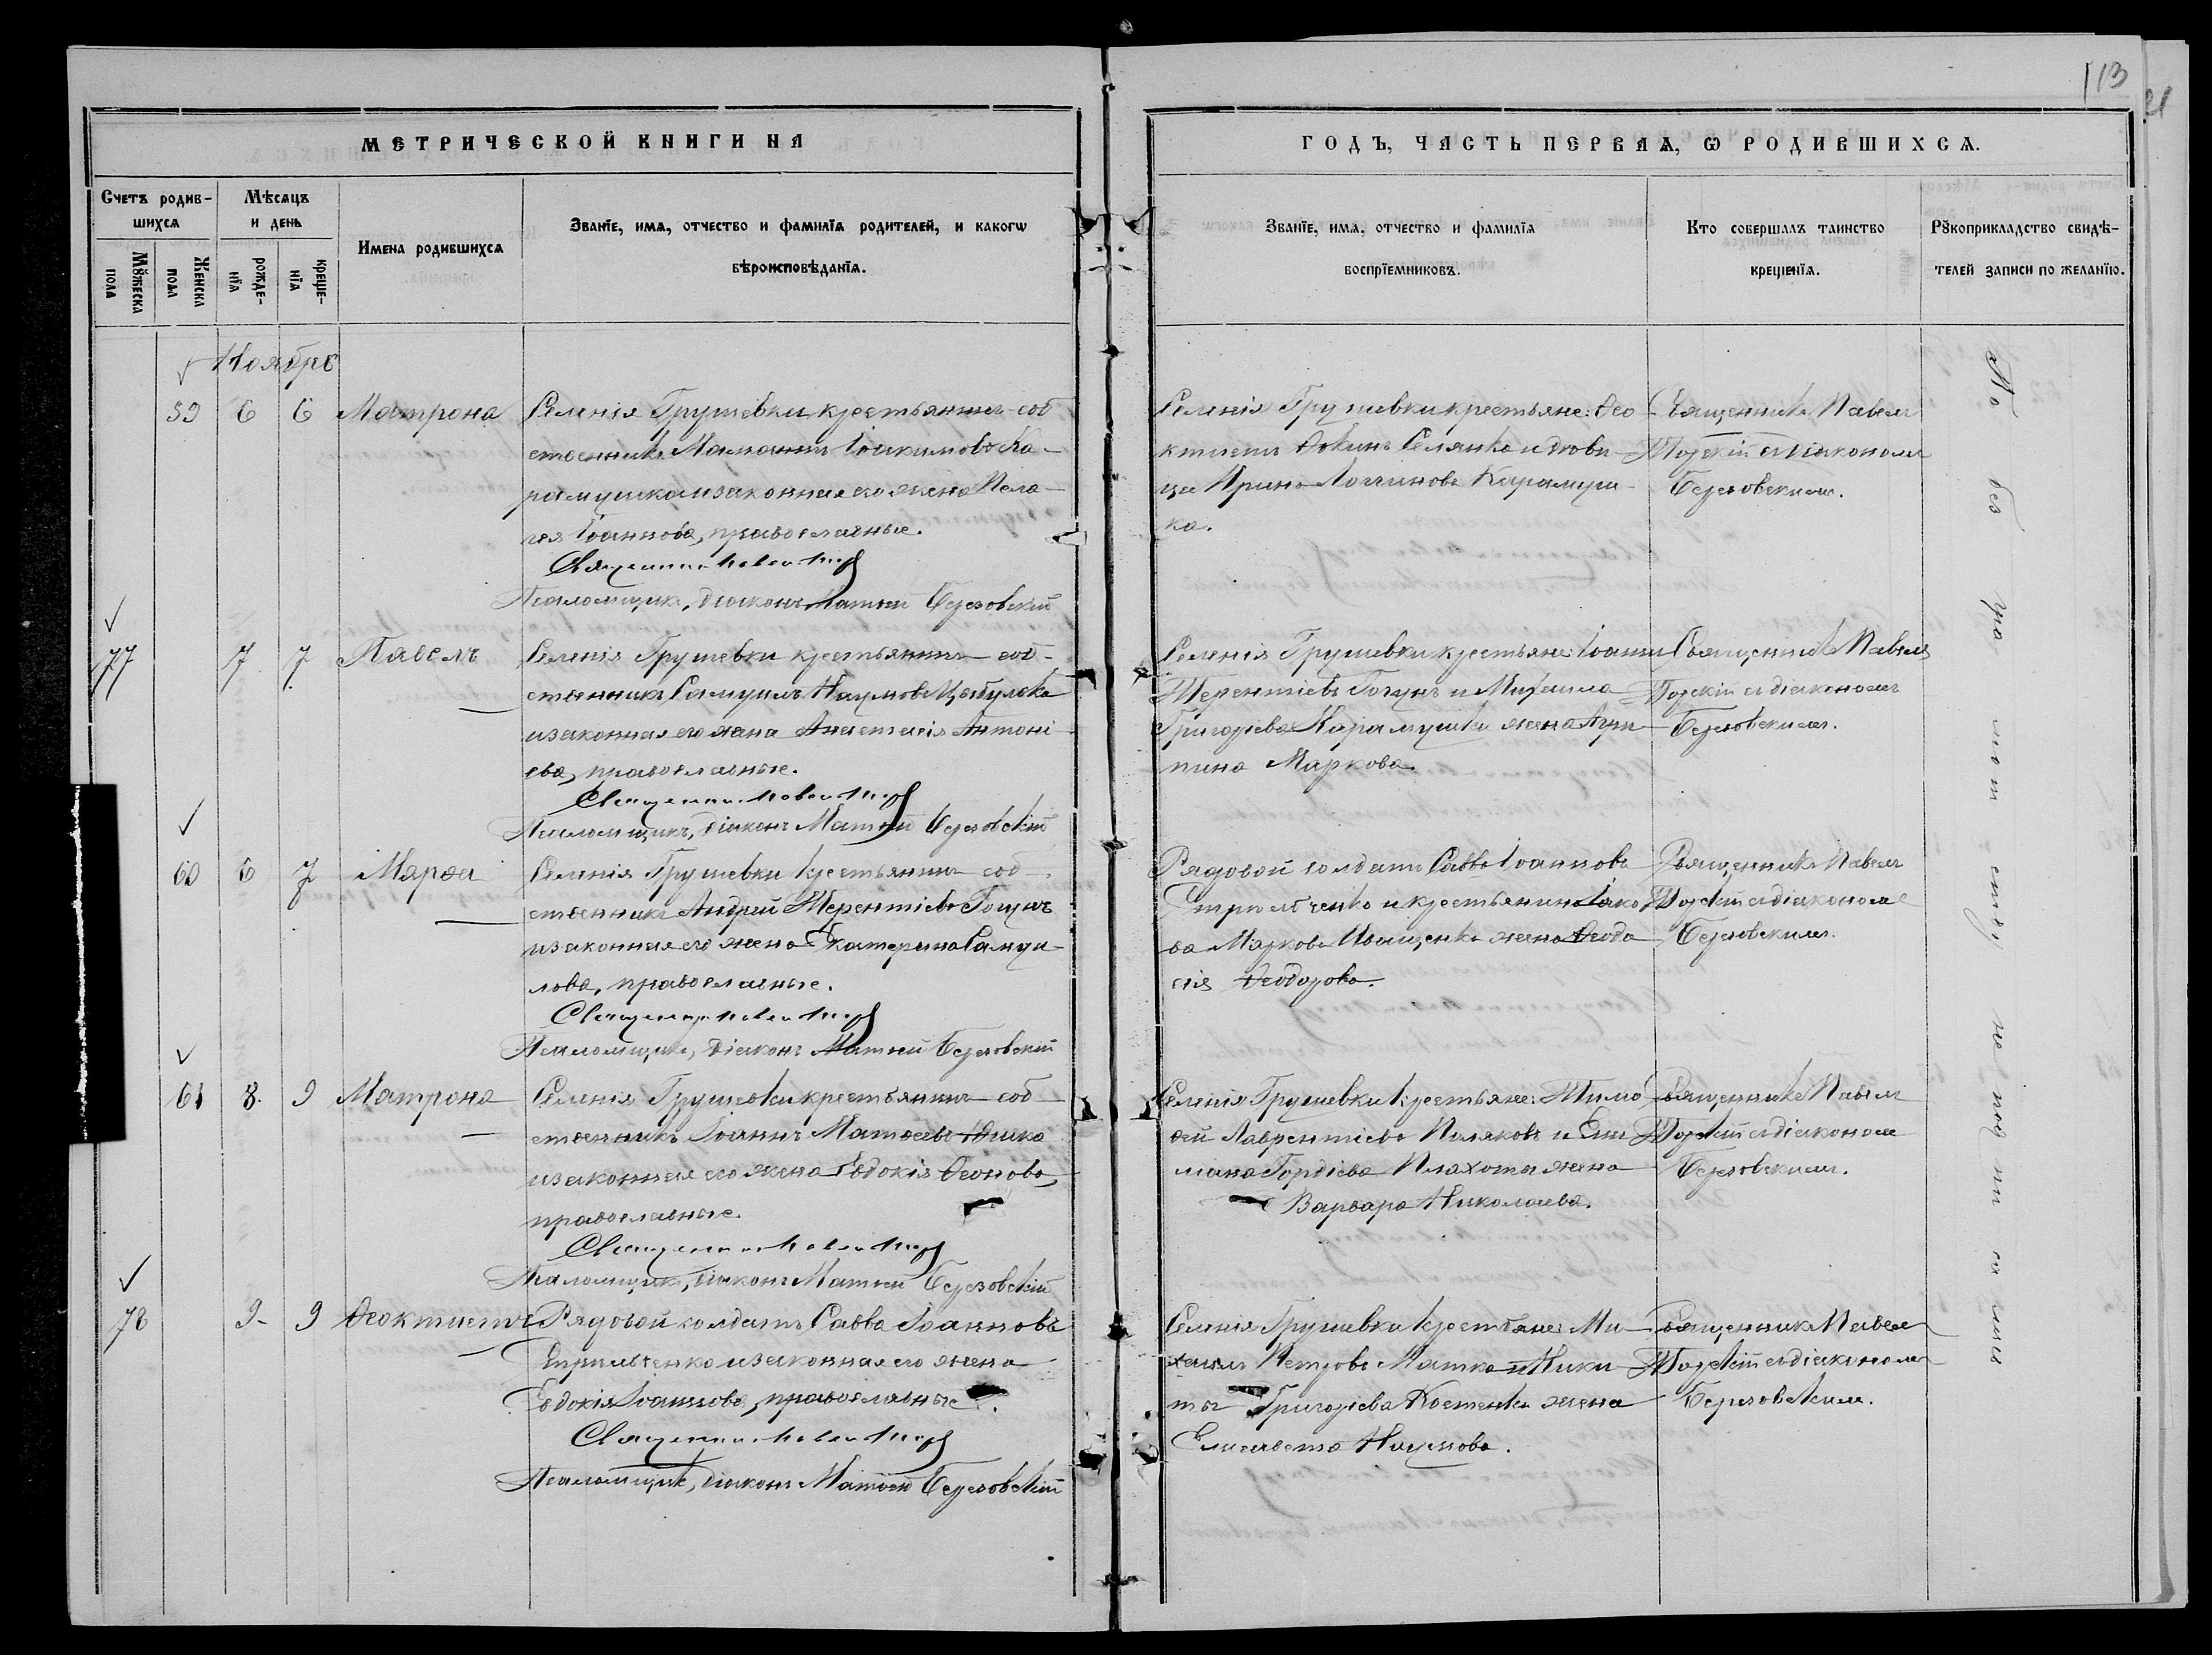 113
21
МЕТРИЧЕСКОЙ КНИГИ НА
ГОДЪ, ЧАСТЬ ПЕРВАЯ, Ѡ РОДИВШИХСЯ.
Счетъ родив-
шихся
Мѹжеска
пола
Женска
пола
Мѣсяцъ
и день
рожде-
нїя
креще-
нїя
Имена родившихся
Званїе, имя, отчество и фамилїя родителей, и какогѡ
вѣроисповѣданїя.
Званїе, имя, отчество и фамилїя
воспрїемниковъ.
Кто совершалъ таинство
крещенїя.
Рѹкоприкладство свидѣ-
телей записи по желанїю.
Ноября
59 6 6 Матрона
Селенія Грушевки крестьянинъ соб
ственникъ Іоакимовъ Ка-
рамушка и законная его жена Пела-
гея Іоаннова, православные.
Священникъ Павелъ
Псаломщикъ, діаконъ Матѳей Березовскій
Селенія Грушевки крестьяне: Ѳео
ктистъ Селянко и дѣви-
ца Ирина Логгинова Карамуш-
ка.
Священникъ Павелъ
съ діакономъ
Березовскимъ.
77 7 7 Павелъ
Селенія Грушевки крестьянинъ соб-
ственникъ Самуилъ Наумовъ Цыбулька
и законная его жена Анастасія Антоні
ева, православные.
Священникъ Павелъ
Псаломщикъ, діаконъ Матѳей Березовскій
Селенія Грушевки крестьяне: Іоаннъ
Терентіевъ Гогунъ и Михаила
Григорьева Карамушки жена Агри
пина Маркова.
Священникъ Павелъ
съ діакономъ
Березовскимъ.
60 6 7 Марѳа
Селенія Грушевки крестьянинъ соб-
ственникъ Андрей Терентіевъ Гогунъ
и законная его жена Екатерина Самуи
лова, православные.
Священникъ Павелъ
Псаломщикъ, діаконъ Матѳей Березовскій
Рядовой солдатъ Савва Іоанновъ
и крестьянина Іако
ва Маркова Иващенка жена Ѳеодо
сія Ѳеодорова.
Священникъ Павелъ
съ діакономъ
Березовскимъ.
61 8. 9 Матрона
Селенія Грушевки крестьянинъ соб
ственникъ Іоаннъ Матѳеевъ
и законная его жена Евдокія Ѳеонова,
православные.
Священникъ Павелъ
Псаломщикъ, діаконъ Матѳей Березовскій
Селенія Грушевки крестьяне: Тимо
ѳей Лаврентіевъ Поляковъ и Еми
ліана Гордіева Плахоты жена
Варвара Николаева.
Священникъ Павелъ
съ діакономъ
Березовскимъ.
78 9- 9 Ѳеоктистъ
Рядовой солдатъ Савва Іоанновъ
и законная его жена
Евдокія Іоаннова, православные.
Священникъ Павелъ
Псаломщикъ, діаконъ Матѳей Березовскій
Селенія Грушевки крестьяне: Ми
хаилъ Петровъ Матко и Ники
ты Григорьева Костенка жена
Елисавета Наумова.
Священникъ Павелъ
съ діакономъ
Березовскимъ.